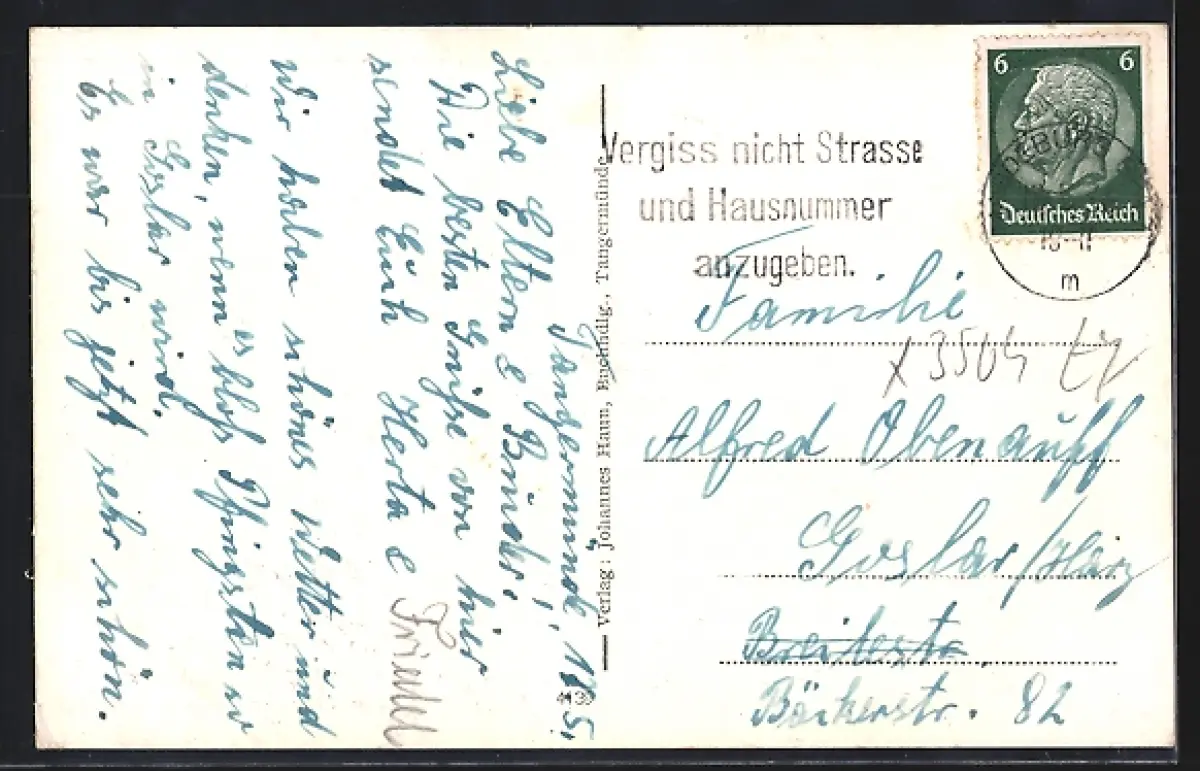 Tangermünde, 18.5.
Liebe Eltern & Brüder!
Die besten Grüße von hier
sendet Euch Herta &
Friedel
Wir haben schönes Wetter und
denken, wenn es bloß Pfingsten so
in Goslar wird.
Es war bis jetzt sehr schön.
Verlag: Johannes Haun, Buchhdlg., Tangermünde
Vergiss nicht Strasse
und Hausnummer
anzugeben.
6 6
Deutsches Reich
m
Familie
x 3504
Alfred Obenauff
Goslar/Harz
Breitestr.
Bäckerstr. 82